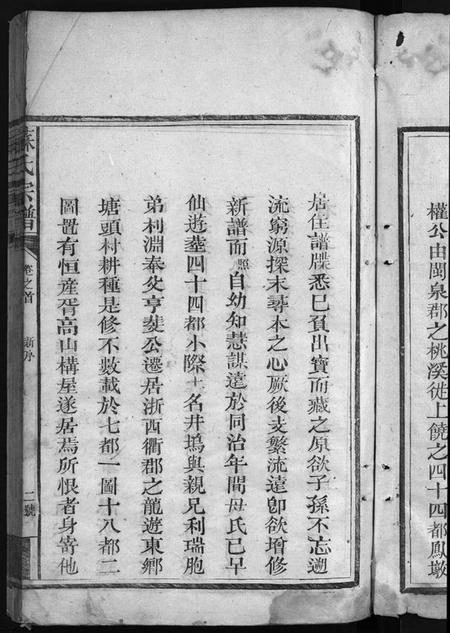 權公由閩泉郡之桃溪徙上饒之四十四都鳳墩
居住譜牒悉已負出寶而藏之原欲子孫不忘遡
流窮源探末尋本之心厥後支繁流遠卽欲增修
新譜而熙自幼知慧謀遠於同治年間母氏已早
仙遊塟四十四都小際土名井塢與親兄利瑞胞
弟利淵奉父亨菼公遷居浙西衢郡之龍遊東鄉
塘頭村耕種是修不數載於七都一圖十八都二
圖置有恒産胥高山構屋遂居焉所恨者身寄他
蘇氏宗譜
卷之首
新序
二號